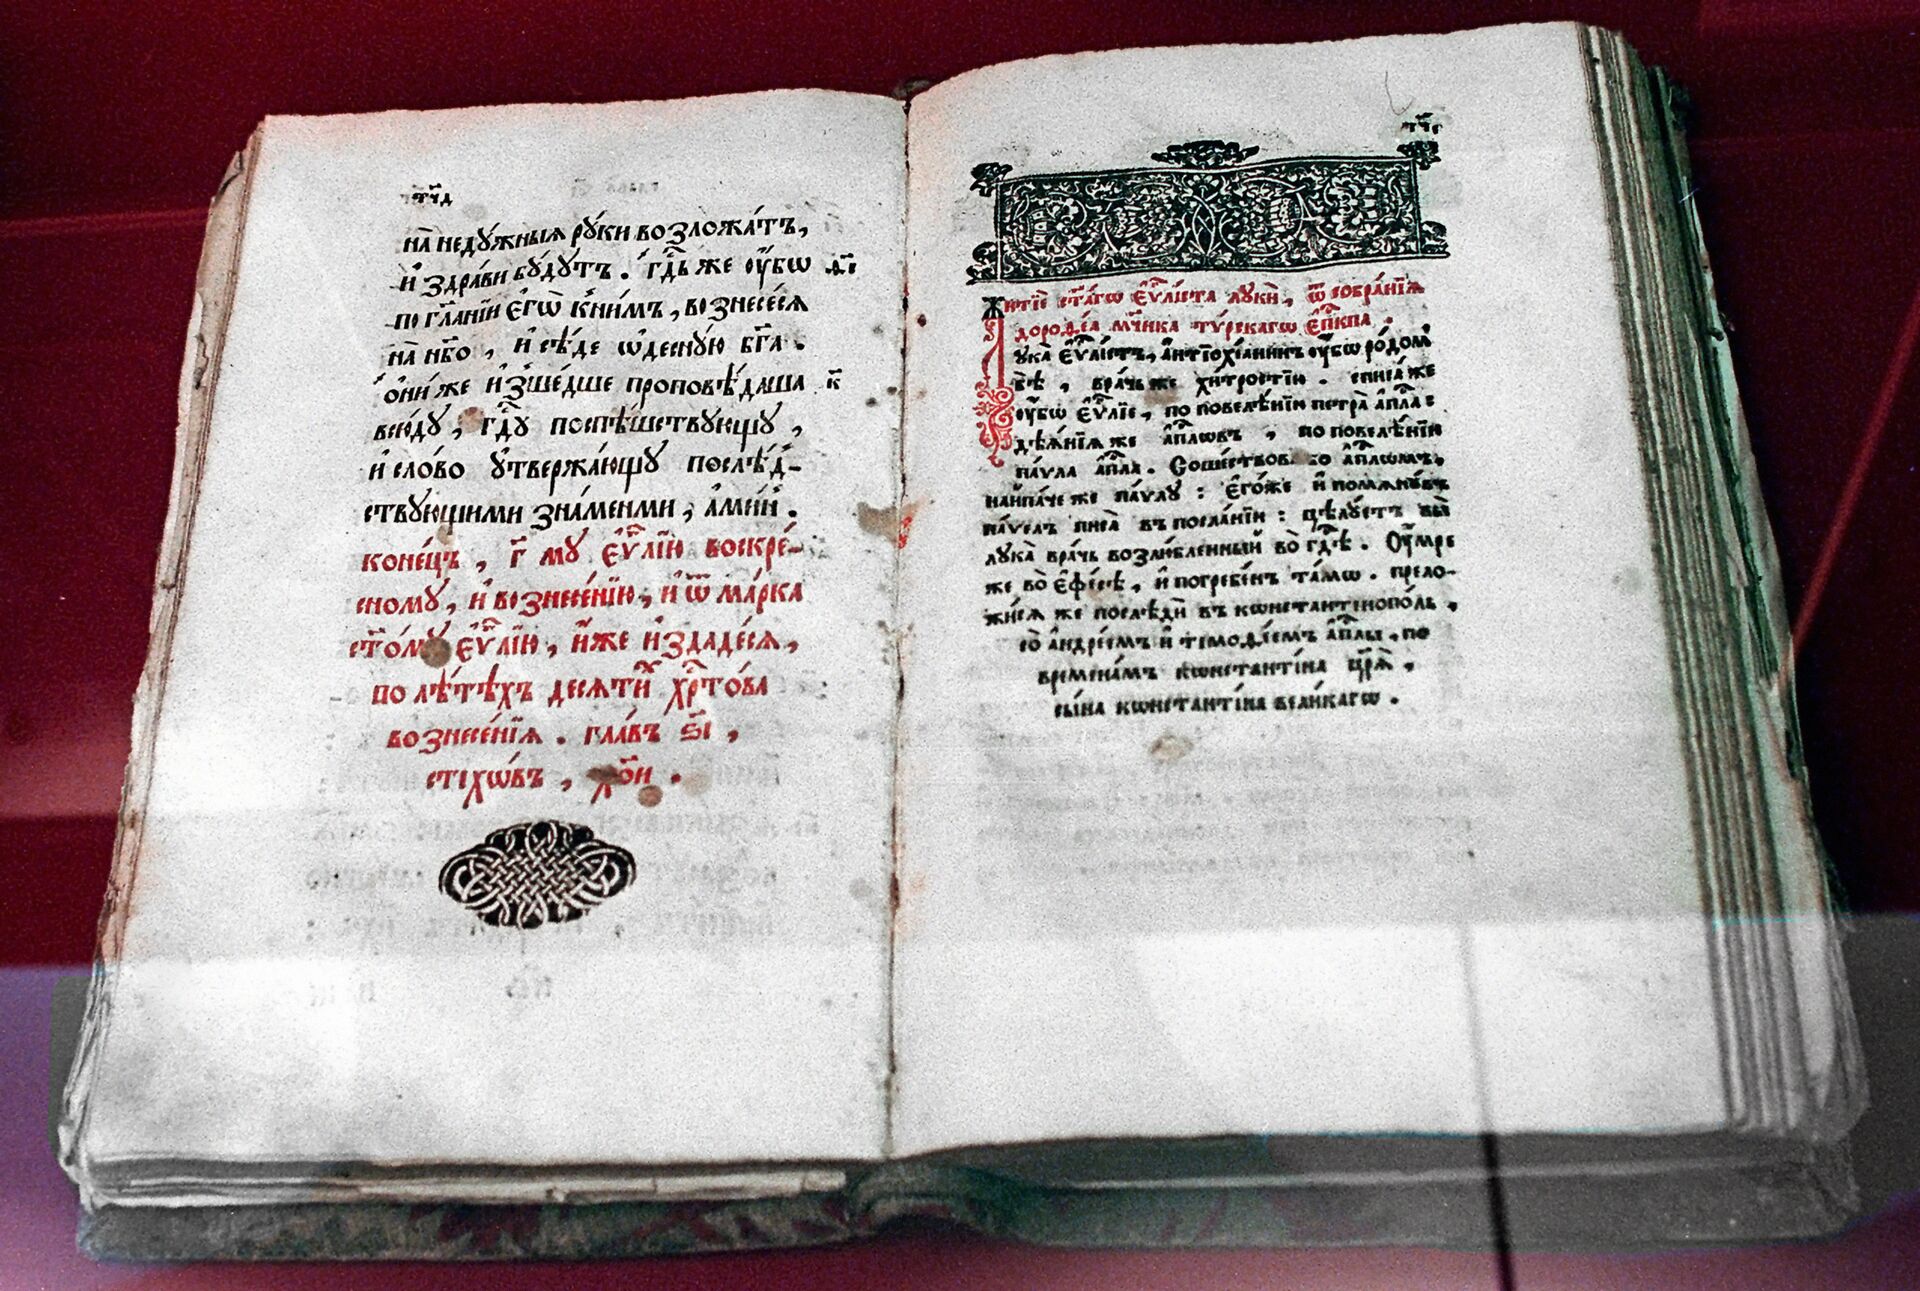 тч҃д
на̀ недꙋ́жныѧ рꙋ́ки возложа́тъ,
и҆ здра́ви бꙋ́дꙋтъ . гдⷭ҇ь же ᲂу҆́бѡ
по гл҃а́нїи є҆гѡ̀ к̾ни́мъ , вознесе́сѧ
на̀ нб҃о , и҆ сѣ́де ѡ҆деснꙋ́ю бг҃а .
ѻ҆ни́ же и҆зше́дше проповѣ́даша к҃
всю́дꙋ , гдⷭ҇ꙋ поспѣ́шствꙋющꙋ ,
и҆ сло́во ᲂу҆твержа́ющꙋ послѣ́д-
ствꙋющими зна́менми , а҆ми́нь .
коне́цъ , г҃ мꙋ є҆ѵⷢ҇лїю воскре́-
сномꙋ , и҆ вознесе́нїю , и҆ ѿ ма́рка
ст҃о́мꙋ є҆ѵⷢ҇лїю , и҆́же и҆здаде́сѧ ,
по лѣ́тѣхъ десѧти̑ хрⷭ҇то́ва
вознесе́нїѧ . гла́въ ѕ҃і ,
стїхѡ́въ ,
тч҃е
Житїѐ ст҃а́гѡ є҆ѵⷢ҇лїста лꙋкѝ , ѿ собра́нїѧ
дороѳе́а мч҃ника тѵ́рскагѡ є҆пⷭ҇кпа .
Лꙋка̀ є҆ѵⷢ҇лїстъ , а҆нтїохїа́нинъ ᲂу҆́бѡ ро́домъ
бѣ̀ , вра́чь же хи́тростїю . списа́ же
ᲂу҆́бѡ є҆ѵⷢ҇лїе , по повелѣ́нїю петра̀ а҆пⷭ҇ла :
дѣѧ̑нїѧ же а҆пⷭ҇лѡвъ , по повелѣ́нїю
па́ѵла а҆пⷭ҇ла . Соше́ствова бо а҆пⷭ҇лѡмъ ,
наипа́че же па́ѵлꙋ : є҆го́же и҆ помѧнꙋ́въ
па́ѵелъ писа̀ въ посла́нїи : цѣлꙋ́етъ вы̀
лꙋка̀ вра́чь возлю́бленный во̀ гдⷭ҇ѣ . Оу҆́мре
же во̀ є҆фе́сѣ , и҆ погребе́нъ та́мѡ . прело-
жи́сѧ же послѣдѝ въ кѡнстантїнопо́ль ,
со̀ а҆ндре́емъ и҆ тїмоѳе́емъ а҆пⷭ҇лы , по
времена́мъ кѡнстанті́на цр҃ѧ̀ ,
сы́на кѡнстанті́на вели́кагѡ .